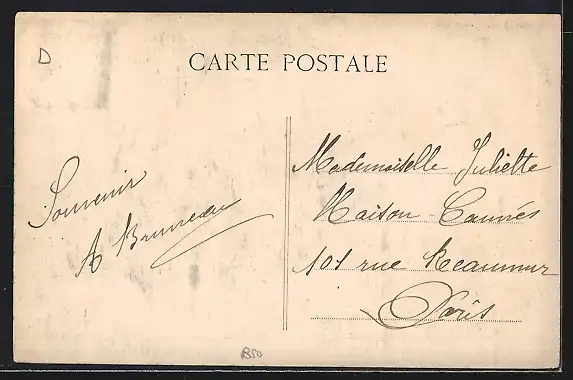 D
CARTE POSTALE
Souvenir
A Bruneau
Mademoiselle Juliette
Maison
101 rue Reaumur
Paris